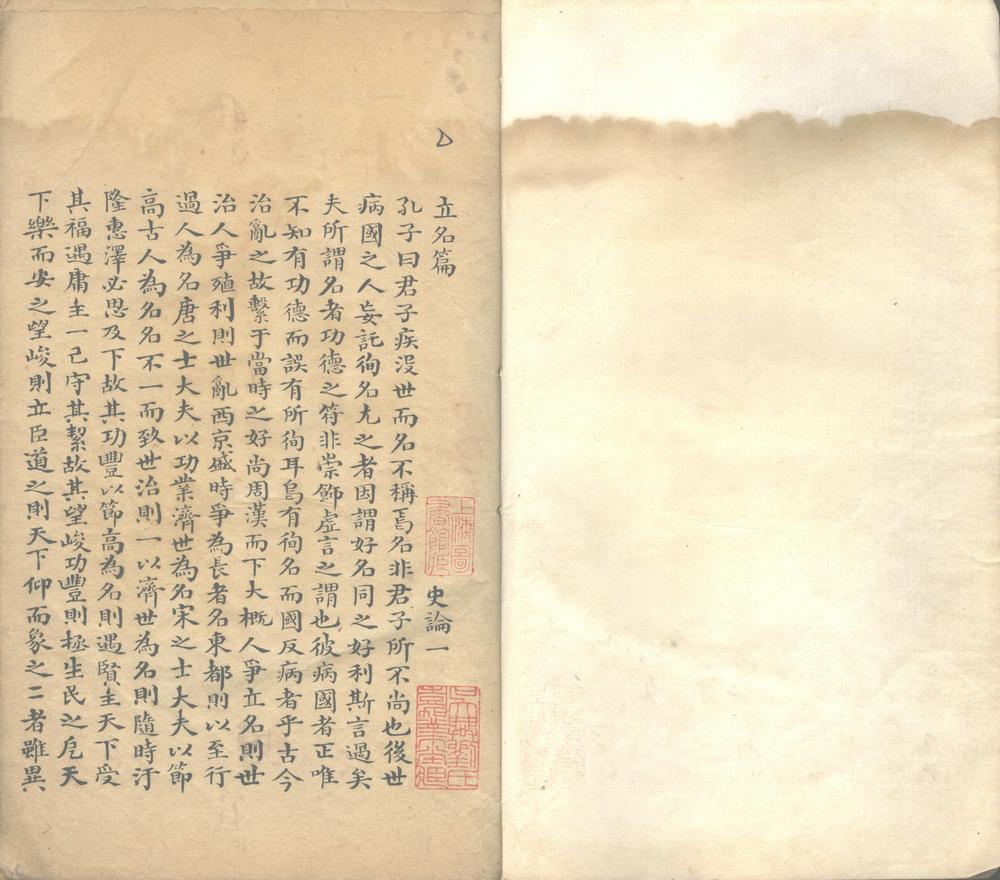 立名篇
史論一
孔子曰君子疾沒世而名不稱焉名非君子所不尚也後世
病國之人妄託徇名尤之者因謂好名同之好利斯言過矣
夫所謂名者功德之符非崇飾虛言之謂也彼病國者正唯
不知有功德而誤有所徇耳烏有徇名而國反病者乎古今
治亂之故繫于當時之好尚周漢而下大概人爭立名則世
治人爭殖利則世亂西京盛時爭為長者名東都則以至行
過人為名唐之士大夫以功業濟世為名宋之士大夫以節
高古人為名名不一而致世治則一以濟世為名則隨時汙
隆惠澤必思及下故其功豐以節高為名則遇賢主天下受
其福遇庸主一己守其絜故其望峻功豐則拯生民之戹天
下樂而安之望峻則立臣道之則天下仰而象之二者雖異
上海圖書館臧